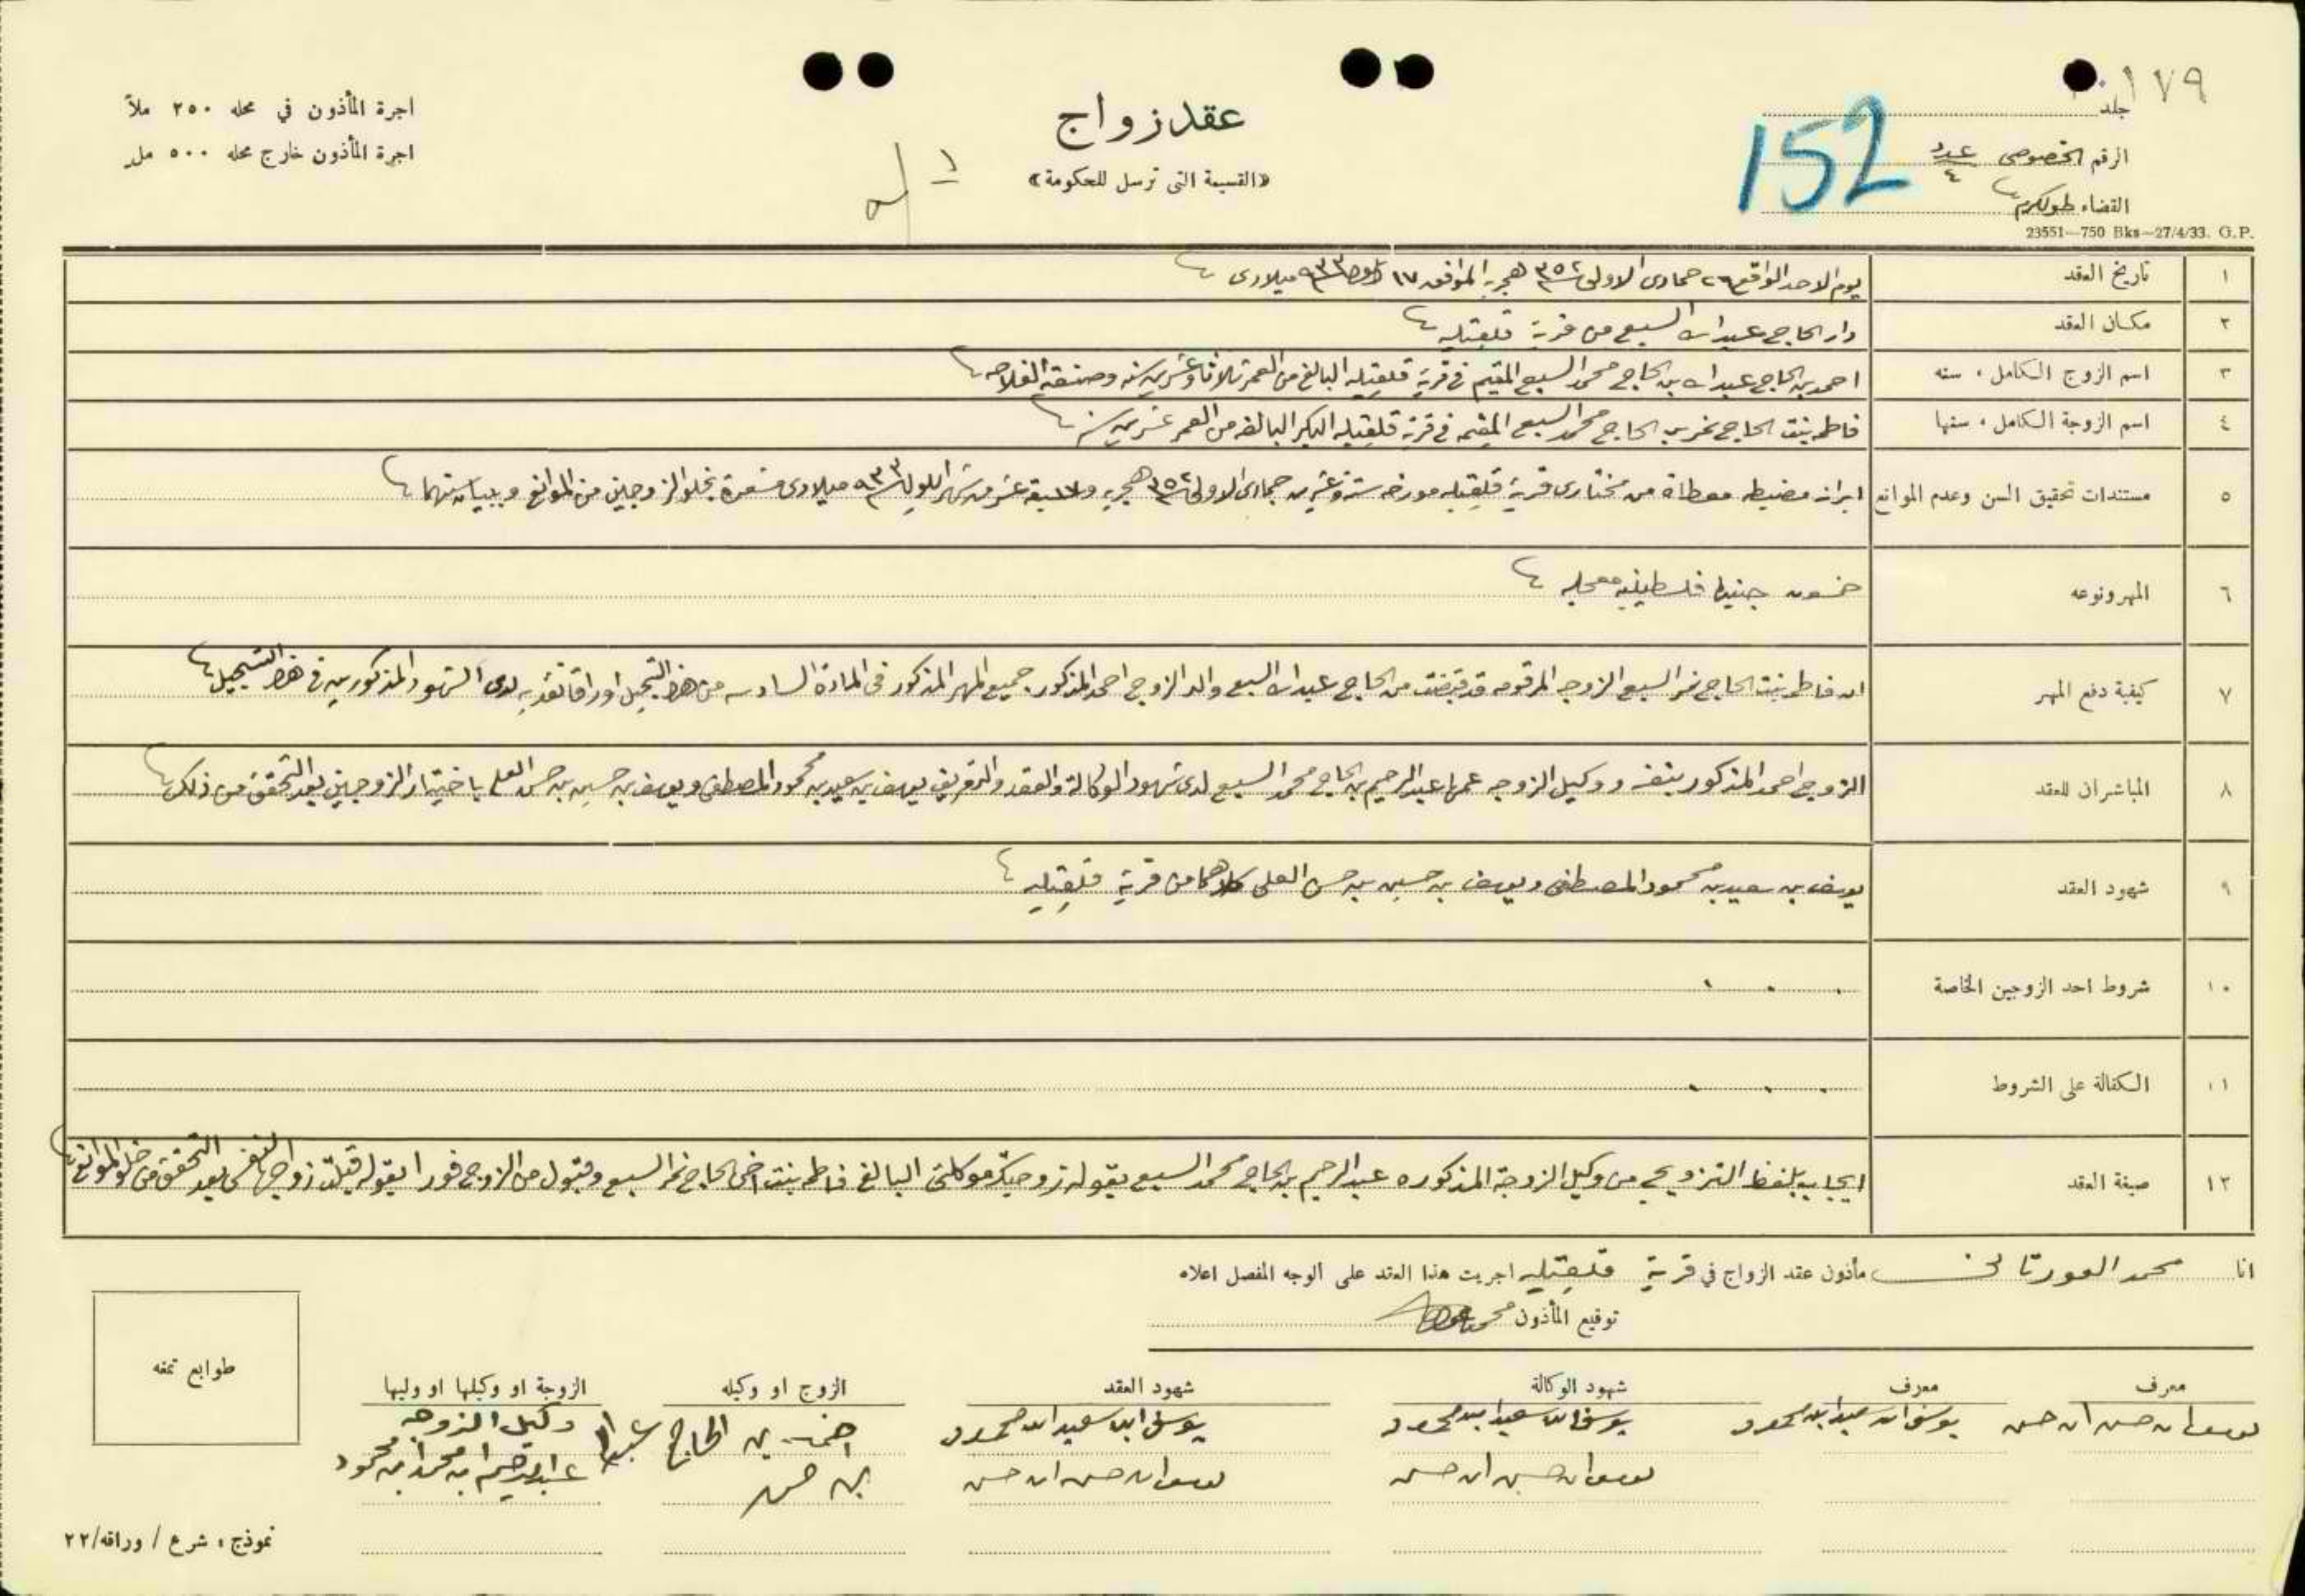 ١٧٩
جلد
الرقم الخصوصي عدد ٤
152
القضاء طولكرم
23551—750 Bks—27/4/33. G.P.
عقد زواج
«القسيمة التي ترسل للحكومة»
اجرة المأذون في محله ٢٥٠ ملاً
اجرة المأذون خارج محله ٥٠٠ مل
١ تاريخ العقد يوم الاحد الواقع ٢٦ جمادى الاولى ٣٥٢ هجريه الموافق ١٧ ايلول ٩٣٣ ميلادى
٢ مكان العقد دار الحاج عبدالله السبع من قرية قلقيليه
٣ اسم الزوج الكامل، سنه احمد بن الحاج عبدالله بن الحاج محمد السبع المقيم في قرية قلقيليه البالغ من العمر ثلاثا وعشرين سنه وصنعته الفلاحه
٤ اسم الزوجة الكامل، سنها فاطمه بنت الحاج نمر بن الحاج محمد السبع المقيمه في قرية قلقيليه البكر البالغه من العمر عشرين سنه
٥ مستندات تحقيق السن وعدم الموانع ابراز مضبطه معطاة من مختارى قرية قلقيليه مورخه ستة وعشرين جمادى الاولى ٣٥٢ هجريه و١٧ سبعة عشر من شهر ايلول ٩٣٣ ميلادى مشعرة بخلو الزوجين من الموانع وببيان سنهما
٦ المهر ونوعه خمسون جنيها فلسطينيه معجله
٧ كيفية دفع المهر ان فاطمه بنت الحاج نمر السبع الزوجه المرقومه قد قبضت من الحاج عبدالله السبع والد الزوج احمد المذكور جميع المهر المذكور في المادة السادسه من هذا التسجيل اوراقا نقديه لدى الشهود المذكورين في هذا التسجيل
٨ المباشران للعقد الزوج احمد المذكور بنفسه ووكيل الزوجه عمها عبدالرحيم بن الحاج محمد السبع لدى شهود الوكالة والعقد والتعريف يوسف بن سعيد بن محمود المصطفى ويوسف بن حسين بن حسن العلي باختيار الزوجين بعد التحقق من ذلك
٩ شهود العقد يوسف بن سعيد بن محمود المصطفى ويوسف بن حسين بن حسن العلي كلاهما من قرية قلقيليه
١٠ شروط احد الزوجين الخاصة
١١ الكفالة على الشروط
١٢ صيغة العقد ايجاب بلفظ التزويج من وكيل الزوجة المذكوره عبدالرحيم بن الحاج محمد السبع بقوله زوجتك موكلتي البالغ فاطمه بنت اخي الحاج نمر السبع وقبول من الزوج فورا بقوله قبلت زواجها لنفسي بعد التحقق من خلو الموانع
انا محمد العورتاني مأذون عقد الزواج في قرية قلقيليه اجريت هذا العقد على الوجه المفصل اعلاه
توقيع المأذون محمد
معرف معرف شهود الوكالة شهود العقد الزوج او وكيله الزوجة او وكيلها او وليها
يوسف ابن حسن ابن حسن يوسف ابن سعيد ابن محمود يوسف ابن سعيد ابن محمود يوسف ابن سعيد ابن محمود احمد بن الحاج عبدالله وكيل الزوجه
يوسف ابن حسين ابن حسن يوسف ابن حسن ابن حسن بن حسن عبدالرحيم ابن محمد ابن محمود
طوابع تمغه
نموذج، شرع / وراقه/٢٢